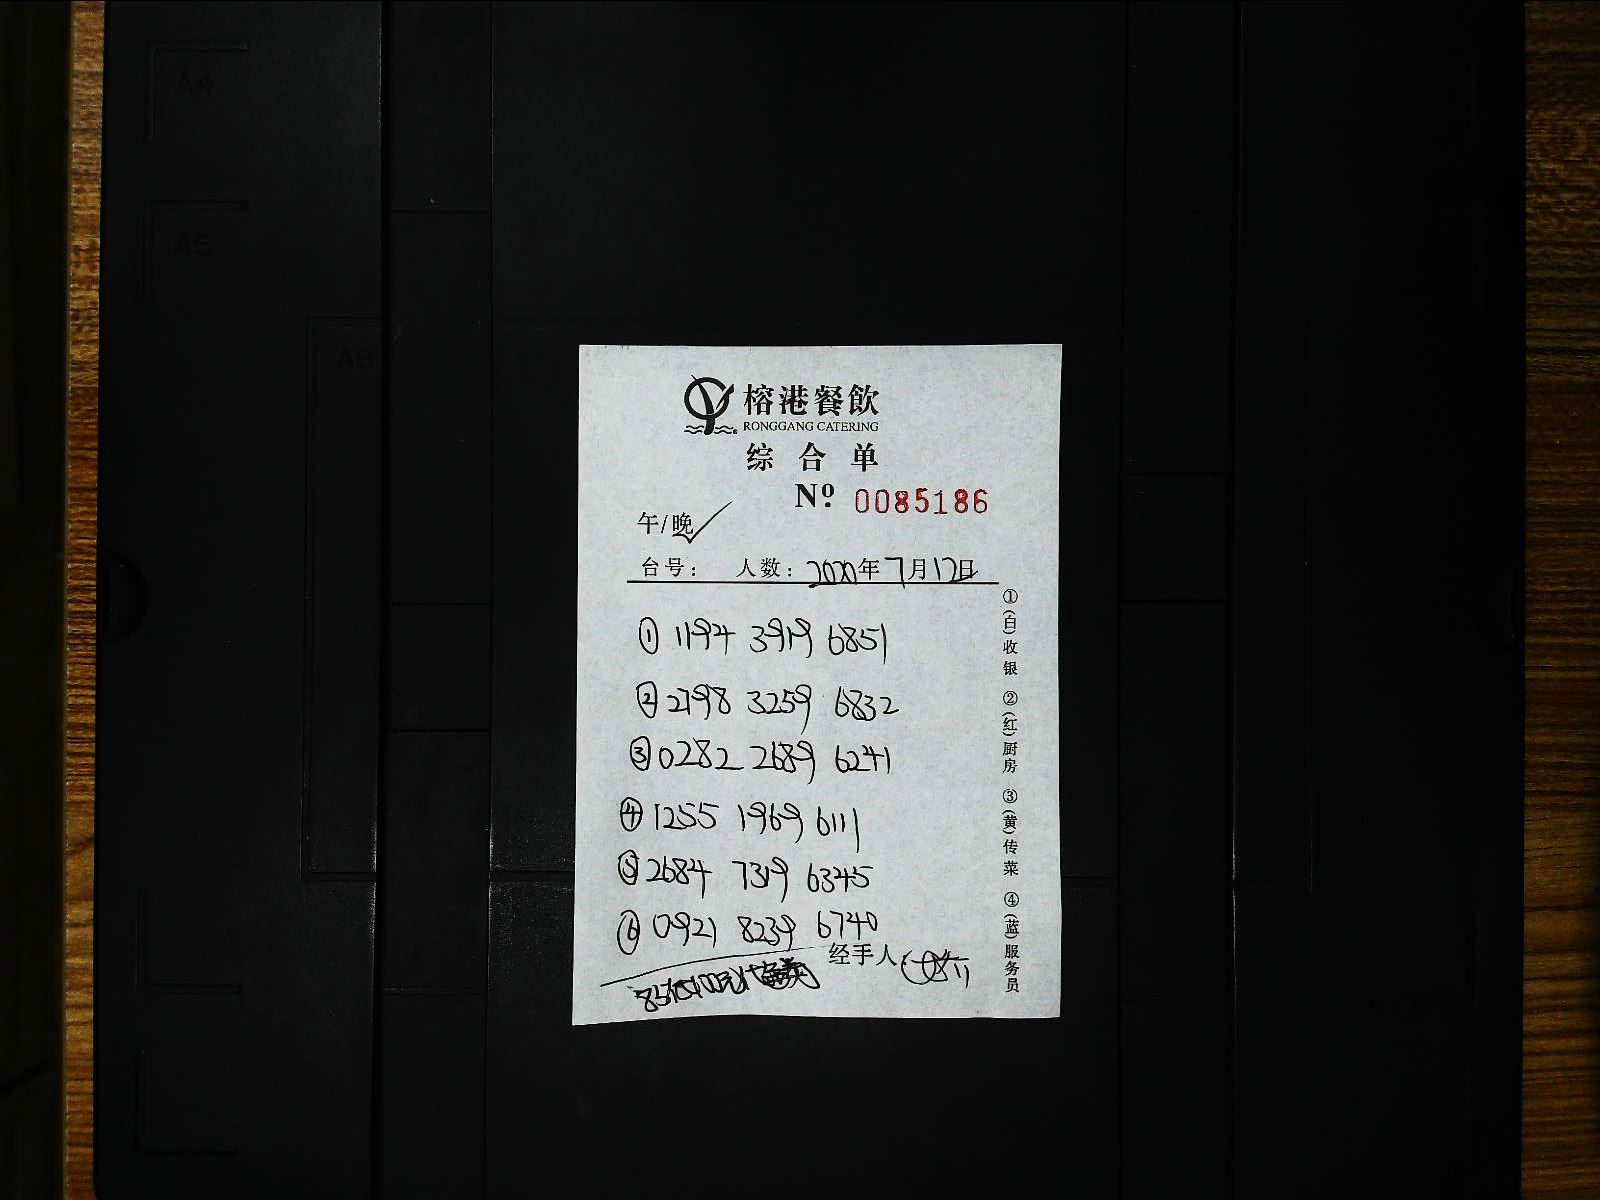 A4
A5
A6
榕港餐飲
RONGGANG CATERING
综合单
Nº 0085186
午/晚✓
台号: 人数: 2020年7月12日
① 1194 3919 6851
② 2198 3259 6832
③ 0282 2689 6241
④ 1255 1969 6111
⑤ 2684 7319 6345
⑥ 0921 8239 6740
经手人:
①(白)收银 ②(红)厨房 ③(黄)传菜 ④(蓝)服务员